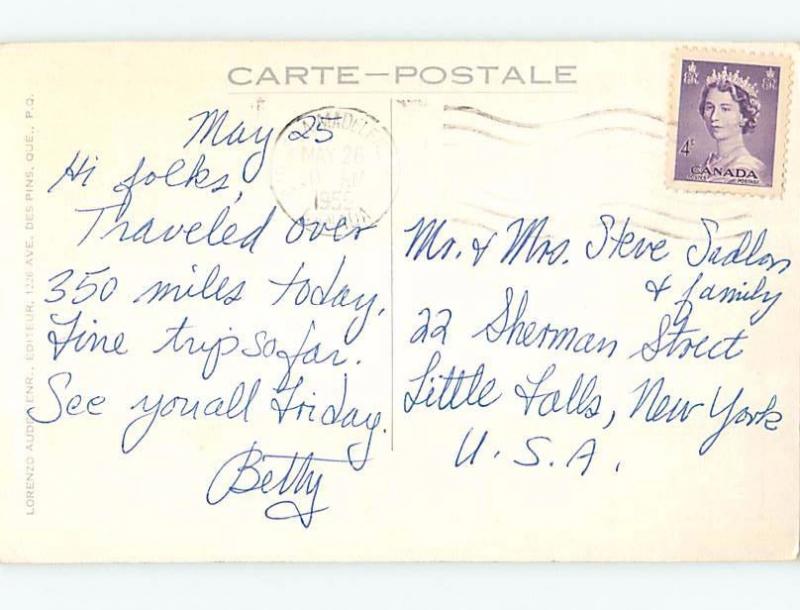 CARTE-POSTALE
May 25
Hi folks,
Traveled over
350 miles today,
Fine trip so far.
See you all Friday.
Betty
MAY 26
4¢
CANADA
Mr. & Mrs. Steve Sadlon
& family
22 Sherman Street
Little Falls, New York
U. S. A.
LORENZO AUDET ENR., EDITEUR, 1226 AVE. DES PINS, QUE., P.Q.